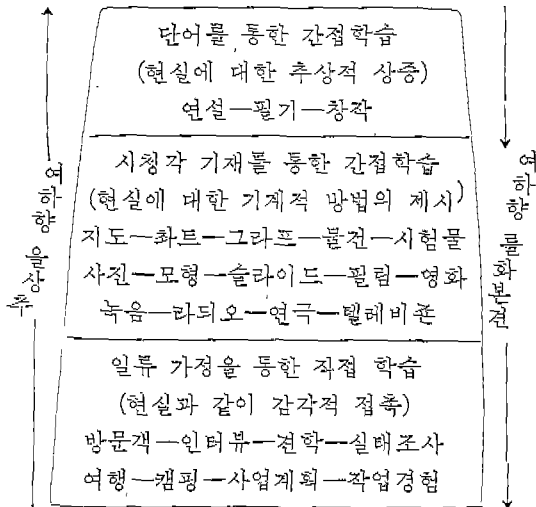 단어를 통한 간접학습
(현실에 대한 추상적 상증)
연설—필기—창작
시청각 기재를 통한 간접학습
(현실에 대한 기계적 방법의 제시)
지도—촤트—그라프—물건—시험물
사진—모형—슬라이드—필림—영화
녹음—라듸오—연극—텔레비죤
일류 가정을 통한 직접 학습
(현실과 같이 감각적 접촉)
방문객—인터뷰—견학—실태조사
여행—캠핑—사업계획—작업경험
여하향 을상추
여하향 를화본견